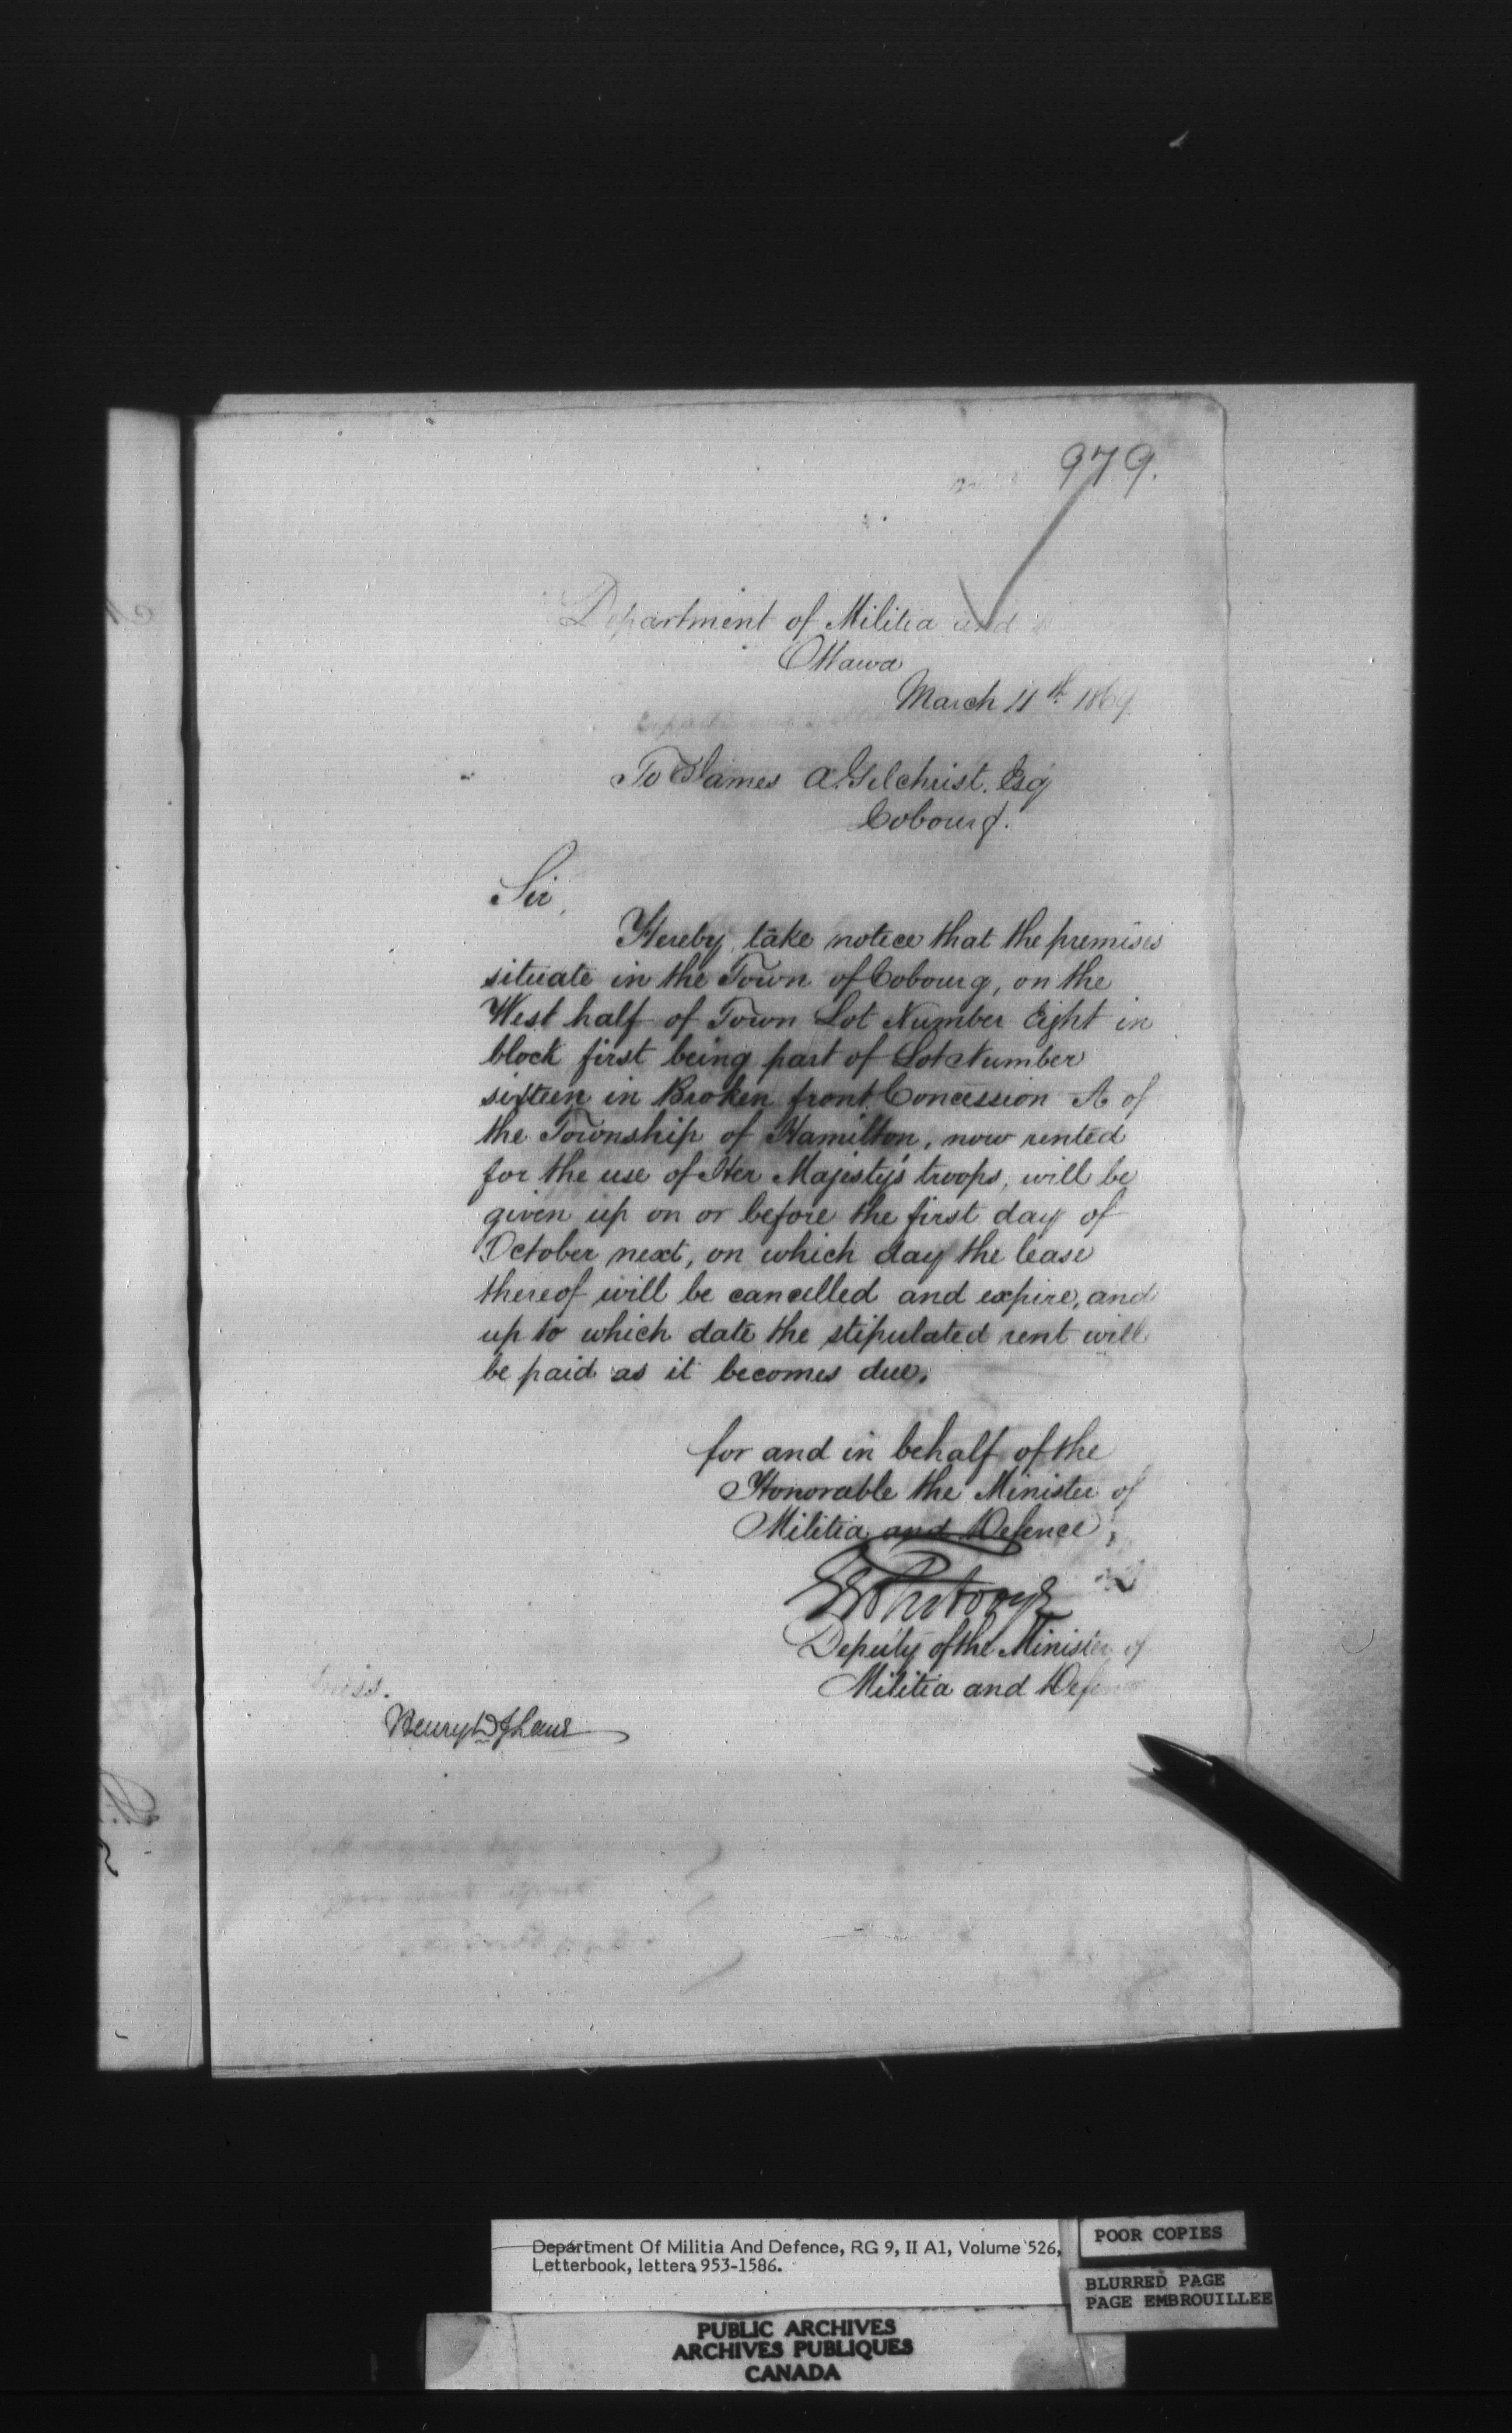 979.
Department of Militia and
Ottawa
March 11th 1869.
To James A. Gilchrist. Esq
Cobourg.
Sir,
Hereby take notice that the premises
situate in the Town of Cobourg, on the
West half of Town Lot Number Eight in
block first being part of Lot Number
sixteen in Broken front Concession A of
the Township of Hamilton, now rented
for the use of Her Majesty's troops, will be
given up on or before the first day of
October next, on which day the lease
thereof will be cancelled and expire, and
up to which date the stipulated rent will
be paid as it becomes due.
for and in behalf of the
Honorable the Minister of
Militia and Defence,
Deputy of the Minister of
Militia and Defence
Henry
Department Of Militia And Defence, RG 9, II A1, Volume 526,
Letterbook, letters 953-1586.
POOR COPIES
BLURRED PAGE
PAGE EMBROUILLEE
PUBLIC ARCHIVES
ARCHIVES PUBLIQUES
CANADA